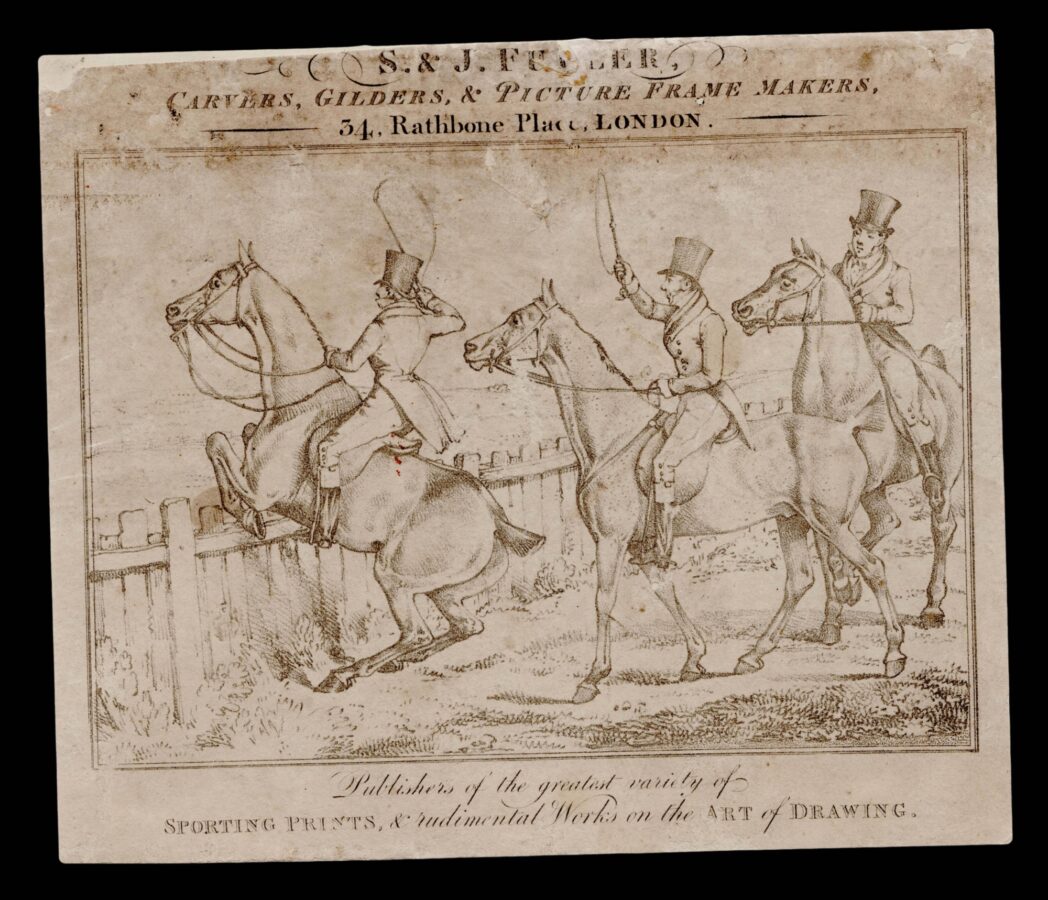 S. & J. FULLER,
CARVERS, GILDERS, & PICTURE FRAME MAKERS,
34, Rathbone Place, LONDON.
Publishers of the greatest variety of
SPORTING PRINTS, & rudimental Works on the ART of DRAWING.